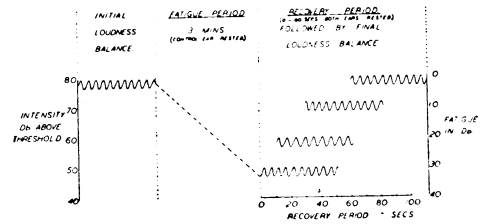 INITIAL
LOUDNESS
BALANCE.
FATIGUE PERIOD
3 MINS
(CONTROL EAR RESTED)
RECOVERY PERIOD
(0-60 SECS BOTH EARS RESTED)
FOLLOWED BY FINAL
LOUDNESS BALANCE
80
70
60
50
40
INTENSITY
Db ABOVE
THRESHOLD
0
10
20
30
40
FATIGUE
IN Db
0 20 40 60 80 100
RECOVERY PERIOD - SECS